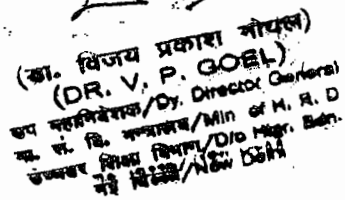 (डा. विजय प्रकाश गोयल)
(DR. V. P. GOEL)
उप महानिदेशक/Dy. Director General
मा. सं. वि. मन्त्रालय/Min of H. R. D
उच्चतर शिक्षा विभाग/D/o Higr. Edn.
नई दिल्ली/New Delhi